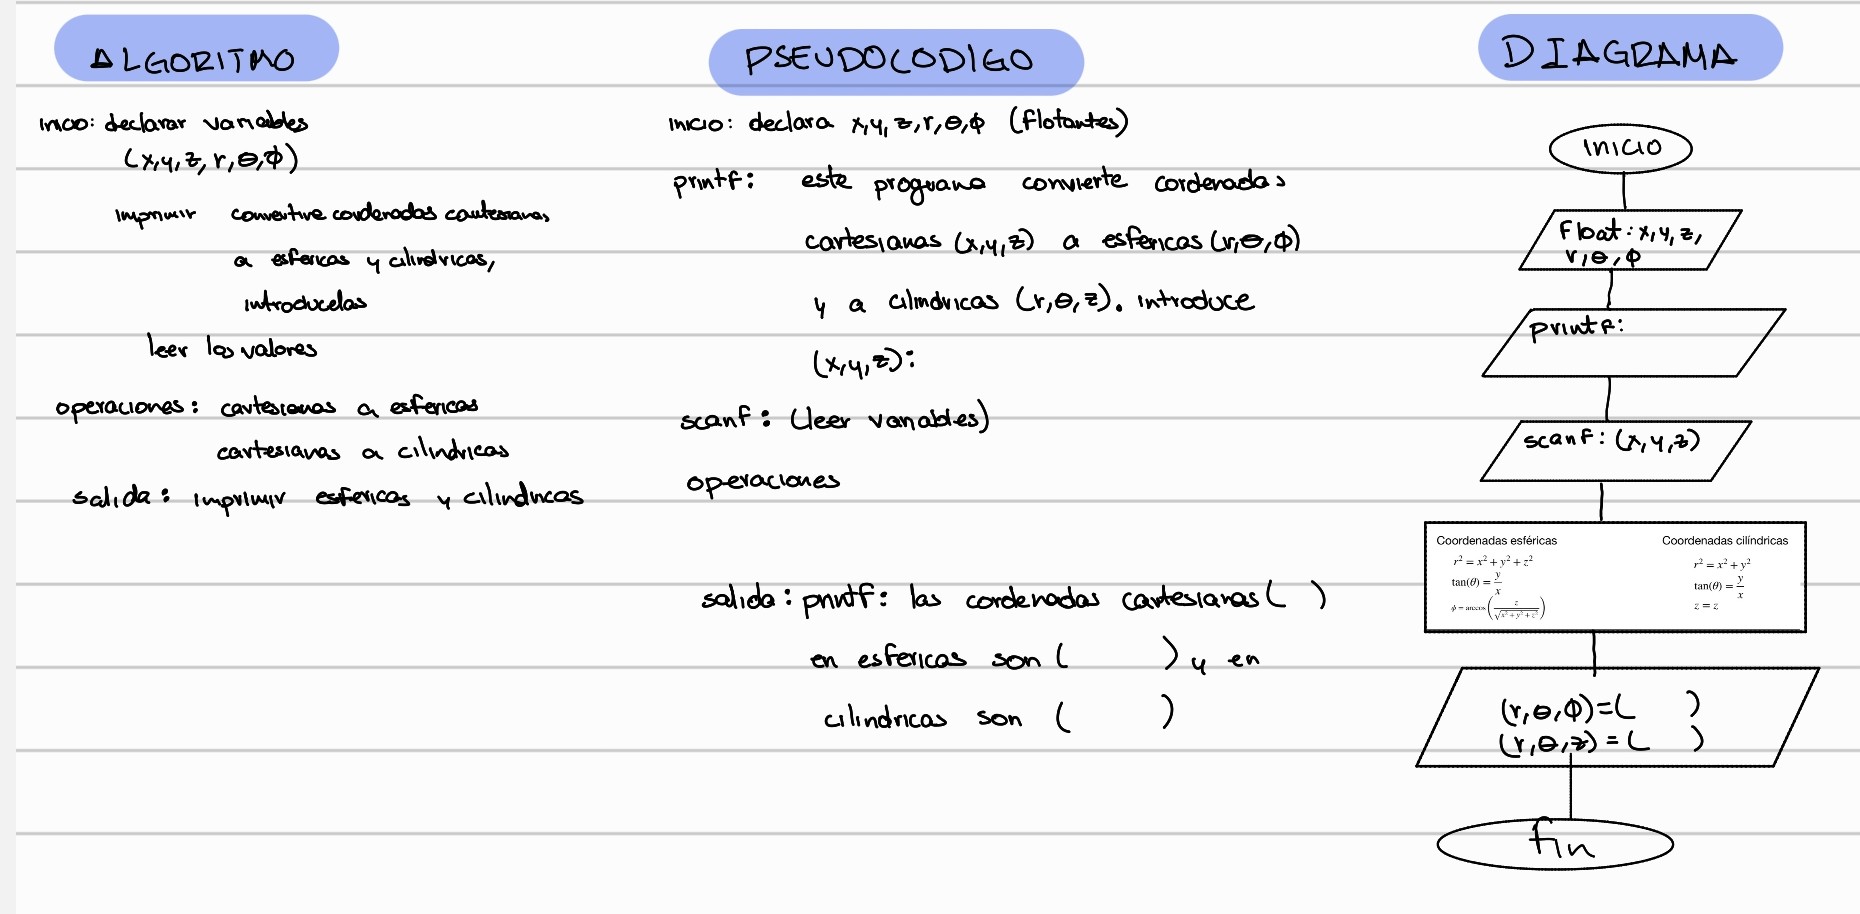 ALGORITMO
inicio: declarar variables
(x,y,z,r,θ,ϕ)
imprimir convertire cordenadas cartesianas
a esfericas y cilindricas,
introducelas
leer los valores
operaciones: cartesianas a esfericas
cartesianas a cilindricas
salida: imprimir esfericas y cilindricas
PSEUDOCODIGO
inicio: declara x,y,z,r,θ,ϕ (flotantes)
printf: este programa convierte cordenadas
cartesianas (x,y,z) a esfericas (r,θ,ϕ)
y a cilindricas (r,θ,z). introduce
(x,y,z):
scanf: (leer variables)
operaciones
salida: printf: las cordenadas cartesianas ( )
en esfericas son ( ) y en
cilindricas son ( )
DIAGRAMA
inicio
Float: x,y,z,
r,θ,ϕ
printf:
scanf: (x,y,z)
Coordenadas esféricas
r² = x² + y² + z²
tan(θ) = y/x
ϕ = arccos(z/√(x² + y² + z²))
Coordenadas cilíndricas
r² = x² + y²
tan(θ) = y/x
z = z
(r,θ,ϕ)=( )
(r,θ,z)=( )
fin